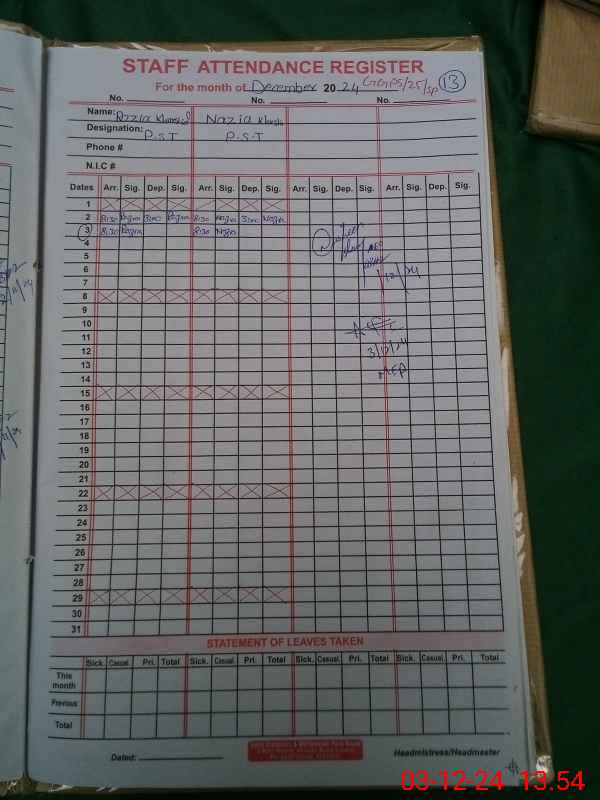 STAFF ATTENDANCE REGISTER
For the month of December 2024 GGPS/25/SP 13
No. No. No.
Name: Razia Nazia
Designation: P.S.T P.S.T
Phone #
N.I.C #
Dates Arr. Sig. Dep. Sig. Arr. Sig. Dep. Sig. Arr. Sig. Dep. Sig. Arr. Sig. Dep. Sig.
1
2 8:30 Razia 3:00 Razia 8:30 Nazia 3:00 Nazia
3 8:30 Razia 8:30 Nazia
4
5
6
7
8
9
10
11
12
13
14
15
16
17
18
19
20
21
22
23
24
25
26
27
28
29
30
31
3/12/24
STATEMENT OF LEAVES TAKEN
Sick. Casual. Pri. Total Sick. Casual. Pri. Total Sick. Casual. Pri. Total Sick. Casual. Pri. Total
This month
Previous
Total
Dated:
Headmistress/Headmaster
03-12-24 13.54